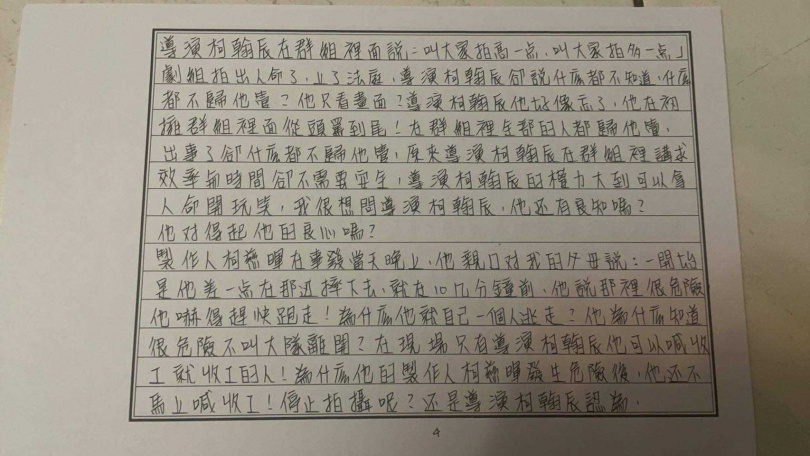 導演柯翰辰在群組裡面說：叫大家拍高一点，叫大家拍多一点」
劇組拍出人命了，上了法庭，導演柯翰辰卻說什庅都不知道，什庅
都不歸他管？他只看畫面？導演柯翰辰他好像忘了，他在初
擁群組裡面從頭罵到尾！在群組裡全部的人都歸他管，
出事了卻什庅都不歸他管，原來導演柯翰辰在群組裡講求
效率和時間卻不需要安全，導演柯翰辰的權力大到可以拿
人命開玩笑，我很想問導演柯翰辰，他还有良知嗎？
他对得起他的良心嗎？
製作人柯慈暉在事發當天晚上，他親口对我的父母說：一開始
是他差一点在那边摔下去，就在10几分鐘前，他說那裡很危險
他嚇得趕快跑走！為什庅他就自己一個人逃走？他為什庅知道
很危險不叫大隊離開？在現場只有導演柯翰辰他可以喊收
工就收工的人！為什庅他的製作人柯慈暉發生危險後，他还不
馬上喊收工！停止拍攝呢？还是導演柯翰辰認為，
4